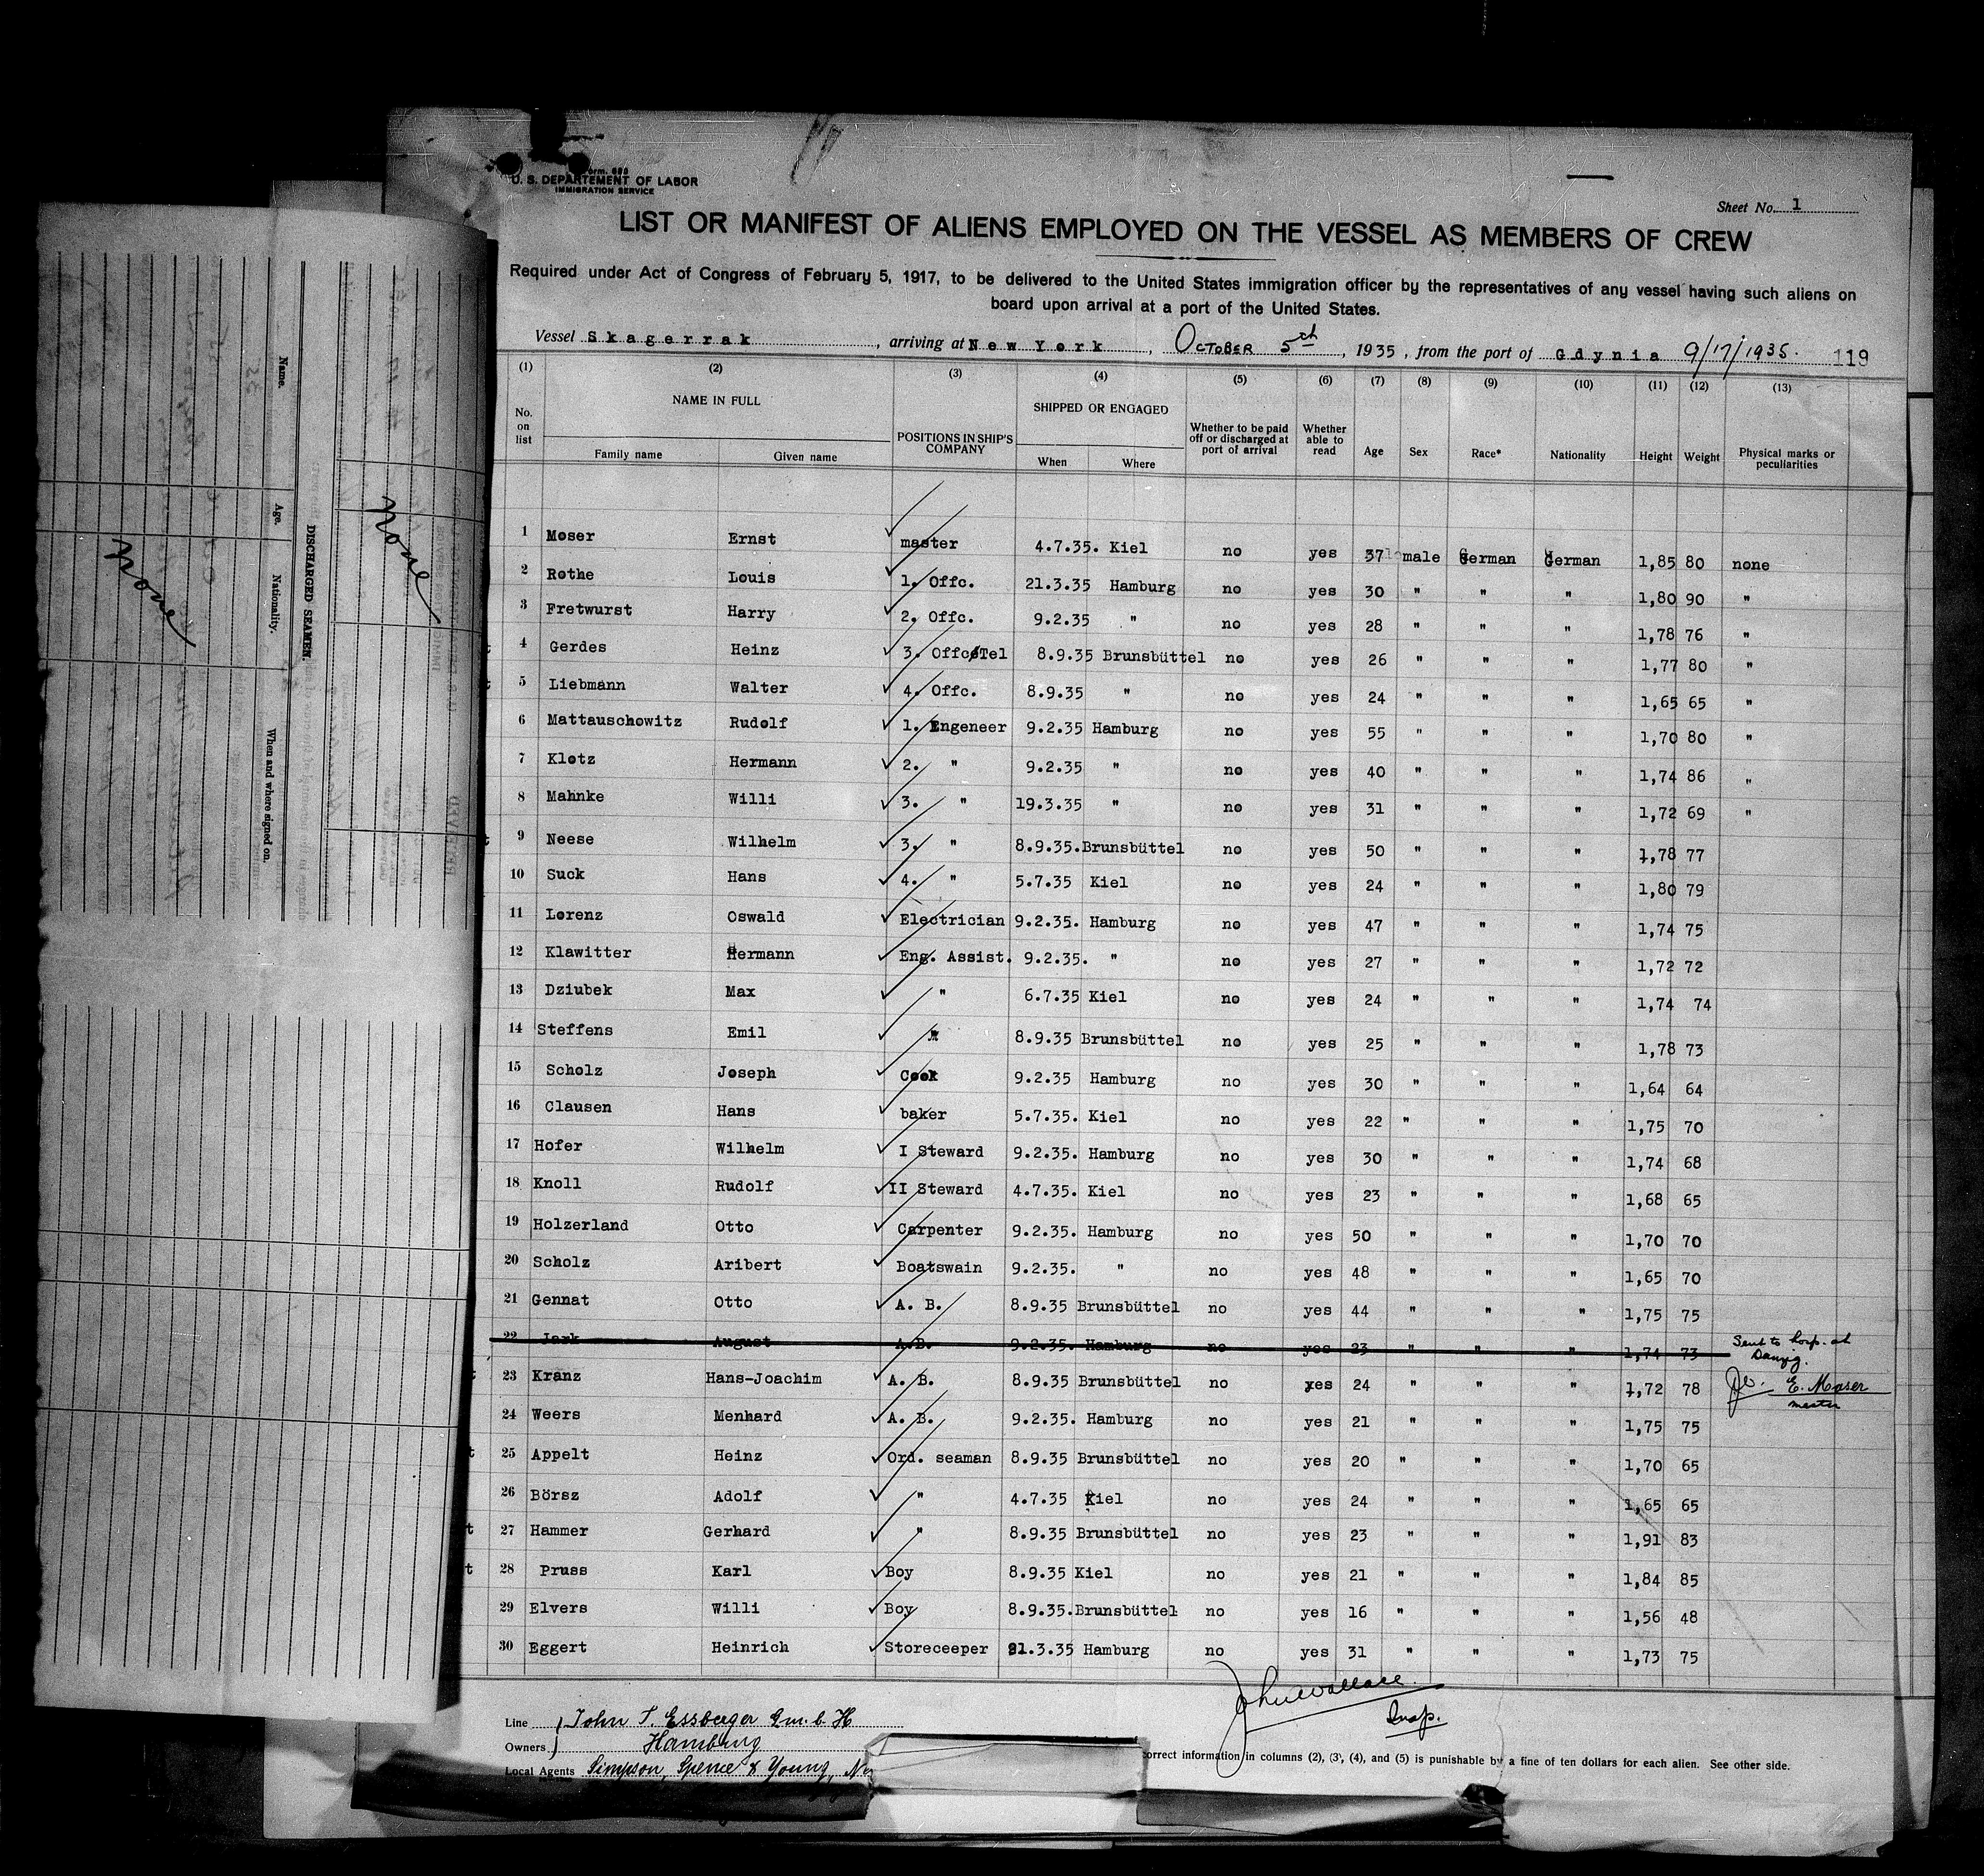 Form. 689
U. S. DEPARTEMENT OF LABOR
IMMIGRATION SERVICE
Sheet No. 1
LIST OR MANIFEST OF ALIENS EMPLOYED ON THE VESSEL AS MEMBERS OF CREW
Required under Act of Congress of February 5, 1917, to be delivered to the United States immigration officer by the representatives of any vessel having such aliens on
board upon arrival at a port of the United States.
Vessel Skagerrak, arriving at New York, October 5th, 1935, from the port of Gdynia 9/17/1935. 119
(1) (2) (3) (4) (5) (6) (7) (8) (9) (10) (11) (12) (13)
No. on list NAME IN FULL Family name Given name POSITIONS IN SHIP'S COMPANY SHIPPED OR ENGAGED When Where Whether to be paid off or discharged at port of arrival Whether able to read Age Sex Race* Nationality Height Weight Physical marks or peculiarities
1 Moser Ernst master 4.7.35. Kiel no yes 37 male German German 1,85 80 none
2 Rothe Louis 1. Offc. 21.3.35 Hamburg no yes 30 " " " 1,80 90 "
3 Fretwurst Harry 2. Offc. 9.2.35 " no yes 28 " " " 1,78 76 "
4 Gerdes Heinz 3. Offc Tel 8.9.35 Brunsbüttel no yes 26 " " " 1,77 80 "
5 Liebmann Walter 4. Offc. 8.9.35 " no yes 24 " " " 1,65 65 "
6 Mattauschowitz Rudolf 1. Engeneer 9.2.35 Hamburg no yes 55 " " " 1,70 80 "
7 Klotz Hermann 2. " 9.2.35 " no yes 40 " " " 1,74 86 "
8 Mahnke Willi 3. " 19.3.35 " no yes 31 " " " 1,72 69 "
9 Neese Wilhelm 3. " 8.9.35. Brunsbüttel no yes 50 " " " 1,78 77
10 Suck Hans 4. " 5.7.35 Kiel no yes 24 " " " 1,80 79
11 Lorenz Oswald Electrician 9.2.35. Hamburg no yes 47 " " " 1,74 75
12 Klawitter Hermann Eng. Assist. 9.2.35. " no yes 27 " " " 1,72 72
13 Dziubek Max " 6.7.35 Kiel no yes 24 " " " 1,74 74
14 Steffens Emil " 8.9.35 Brunsbüttel no yes 25 " " " 1,78 73
15 Scholz Joseph Cook 9.2.35 Hamburg no yes 30 " " " 1,64 64
16 Clausen Hans baker 5.7.35. Kiel no yes 22 " " " 1,75 70
17 Hofer Wilhelm I Steward 9.2.35. Hamburg no yes 30 " " " 1,74 68
18 Knoll Rudolf II Steward 4.7.35. Kiel no yes 23 " " " 1,68 65
19 Holzerland Otto Carpenter 9.2.35. Hamburg no yes 50 " " " 1,70 70
20 Scholz Aribert Boatswain 9.2.35. " no yes 48 " " " 1,65 70
21 Gennat Otto A. B. 8.9.35 Brunsbüttel no yes 44 " " " 1,75 75
22 Jark August A.B. 9.2.35. Hamburg no yes 23 " " " 1,74 73 Sent to hosp. at Danzig.
23 Kranz Hans-Joachim A. B. 8.9.35 Brunsbüttel no yes 24 " " " 1,72 78 E. Moser master
24 Weers Menhard A. B. 9.2.35. Hamburg no yes 21 " " " 1,75 75
25 Appelt Heinz Ord. seaman 8.9.35 Brunsbüttel no yes 20 " " " 1,70 65
26 Börsz Adolf " 4.7.35 Kiel no yes 24 " " " 1,65 65
27 Hammer Gerhard " 8.9.35 Brunsbüttel no yes 23 " " " 1,91 83
28 Pruss Karl Boy 8.9.35 Kiel no yes 21 " " " 1,84 85
29 Elvers Willi Boy 8.9.35. Brunsbüttel no yes 16 " " " 1,56 48
30 Eggert Heinrich Storeceeper 21.3.35 Hamburg no yes 31 " " " 1,73 75
John Wallace
Insp.
Line John T. Essberger G.m.b.H
Owners Hamburg
Local Agents Simpson, Spence & Young,
correct information in columns (2), (3), (4), and (5) is punishable by a fine of ten dollars for each alien. See other side.
none
DISCHARGED SEAMEN.
Name. Age. Nationality. When and where signed on.
none